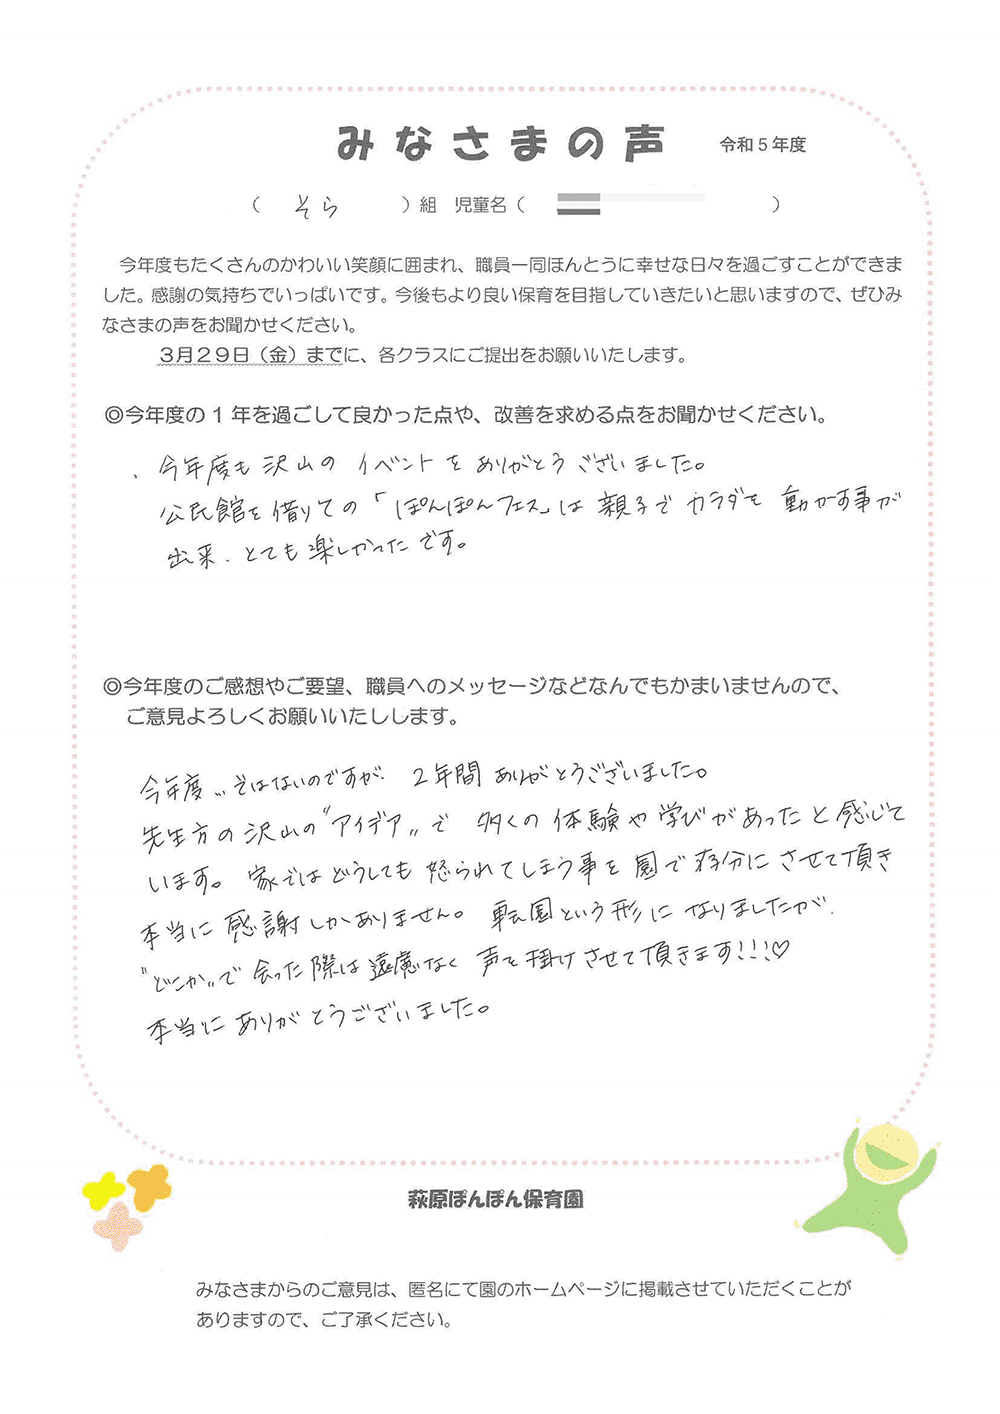 みなさまの声 令和5年度
（ そら ）組 児童名（ ）
今年度もたくさんのかわいい笑顔に囲まれ、職員一同ほんとうに幸せな日々を過ごすことができま
した。感謝の気持ちでいっぱいです。今後もより良い保育を目指していきたいと思いますので、ぜひみ
なさまの声をお聞かせください。
3月29日（金）までに、各クラスにご提出をお願いいたします。
◎今年度の1年を過ごして良かった点や、改善を求める点をお聞かせください。
、今年度も沢山の イベントを ありがとうございました。
公民館を借りての「ぽんぽんフェス」は 親子で カラダを 動かす事が
出来、とても楽しかったです。
◎今年度のご感想やご要望、職員へのメッセージなどなんでもかまいませんので、
ご意見よろしくお願いいたしします。
今年度〟ではないのですが、2年間 ありがとうございました。
先生方の沢山の〝アイデア〟で 多くの 体験や学びがあったと感じて
います。家ではどうしても 怒られてしまう事を 園で 存分に させて頂き
本当に 感謝しかありません。転園という形に なりましたが、
〝どこか〟で 会った際は遠慮なく 声を掛けさせて頂きます!!!♡
本当に ありがとうございました。
萩原ぽんぽん保育園
みなさまからのご意見は、匿名にて園のホームページに掲載させていただくことが
ありますので、ご了承ください。